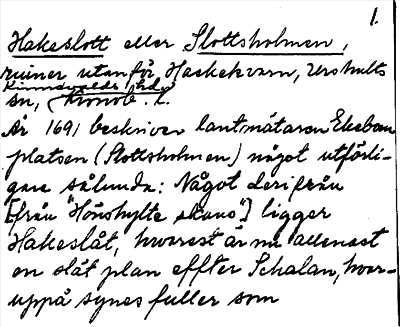 1.
Hakeslott eller Slottsholmen,
ruiner utanför Hackekvarn, Urshults
Kinnevalds hd.
sn, Kronob. l.
År 1691 beskriver lantmätaren Ekebom
platsen (Slottsholmen) något utförli-
gare sålunda: Något derifrån
[från "Hönshylte skans"] ligger
Hakeslåt, hvarest är nu allenast
en slät plan effter Schalan, hvar-
uppå synes fuller som